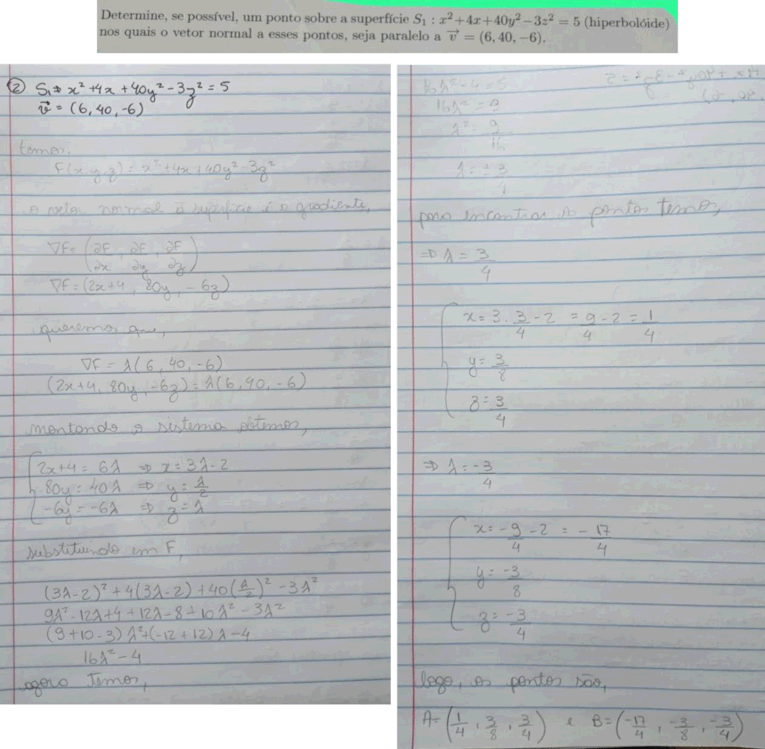 Determine, se possível, um ponto sobre a superfície S₁ : x²+4x+40y²−3z² = 5 (hiperbolóide)
nos quais o vetor normal a esses pontos, seja paralelo a v⃗ = (6, 40, −6).
② S₁ ⇒ x² + 4x + 40y² - 3z² = 5
v⃗ = (6, 40, -6)
temos,
F(x, y, z) = x² + 4x + 40y² - 3z²
o vetor normal à superfície é o gradiente,
∇F = (∂F/∂x, ∂F/∂y, ∂F/∂z)
∇F = (2x+4, 80y, -6z)
queremos que,
∇F = λ(6, 40, -6)
(2x+4, 80y, -6z) = λ(6, 40, -6)
montando o sistema
2x+4 = 6λ ⇒ x = 3λ-2
80y = 40λ ⇒ y = λ/2
-6z = -6λ ⇒ z = λ
substituindo em F,
(3λ-2)² + 4(3λ-2) + 40(λ/2)² - 3λ²
9λ² - 12λ + 4 + 12λ - 8 + 10λ² - 3λ²
(9+10-3)λ² + (-12+12)λ - 4
16λ² - 4
agora temos,
16λ² - 4 = 5
16λ² = 9
λ² = 9/16
para encontrar os pontos temos,
⇒ λ = 3/4
x = 3 · 3/4 - 2 = 9/4 - 2 = 1/4
y = 3/8
z = 3/4
⇒ λ = -3/4
x = -9/4 - 2 = -17/4
y = -3/8
z = -3/4
logo, os pontos são,
A = (1/4, 3/8, 3/4) e B = (-17/4, -3/8, -3/4)